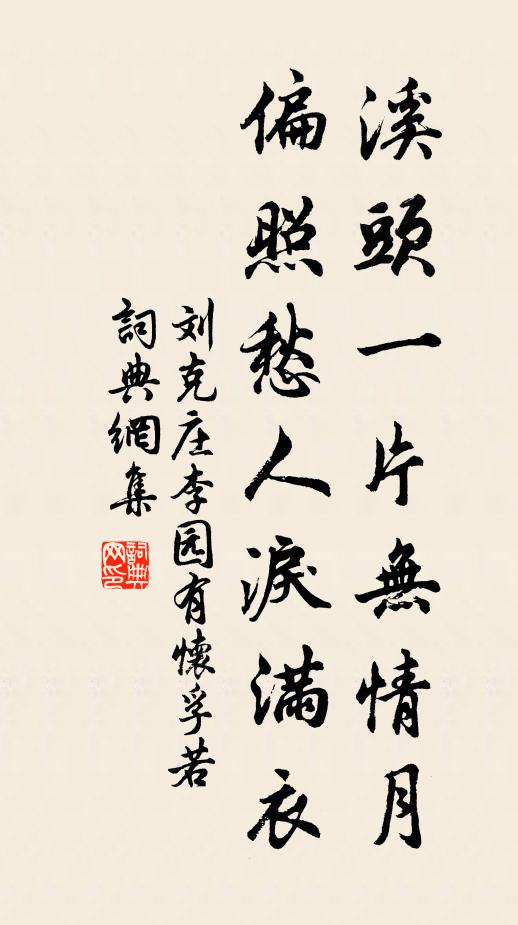 溪頭一片無情月
偏照愁人淚滿衣
刘克庄李园有懷孚若
詞典網集
詞典网印